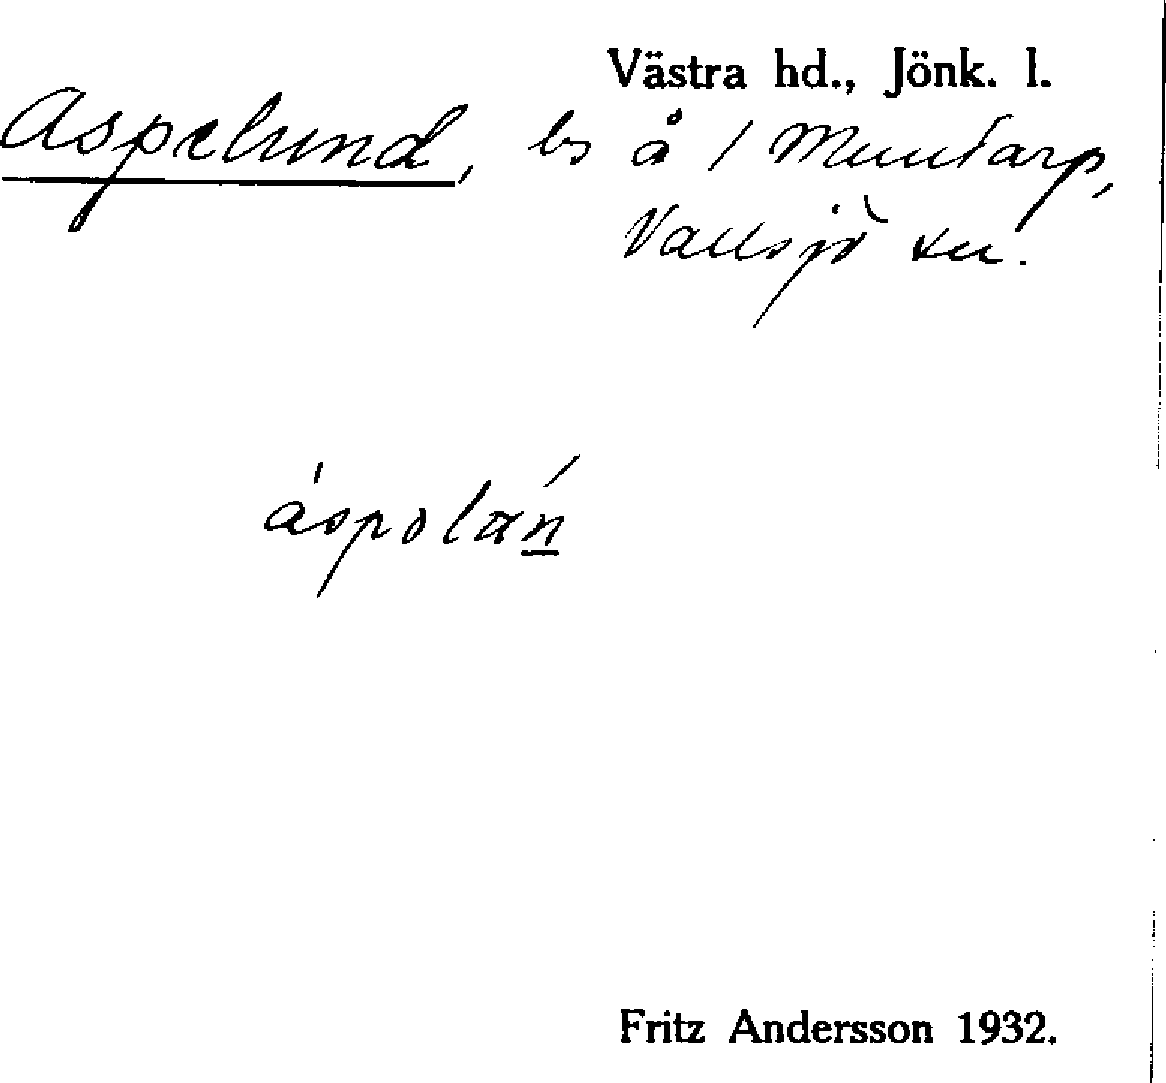 Västra hd., Jönk. l.
Aspelund, ls å 1 Muntarp,
Vallsjö sn.
áspolán
Fritz Andersson 1932.